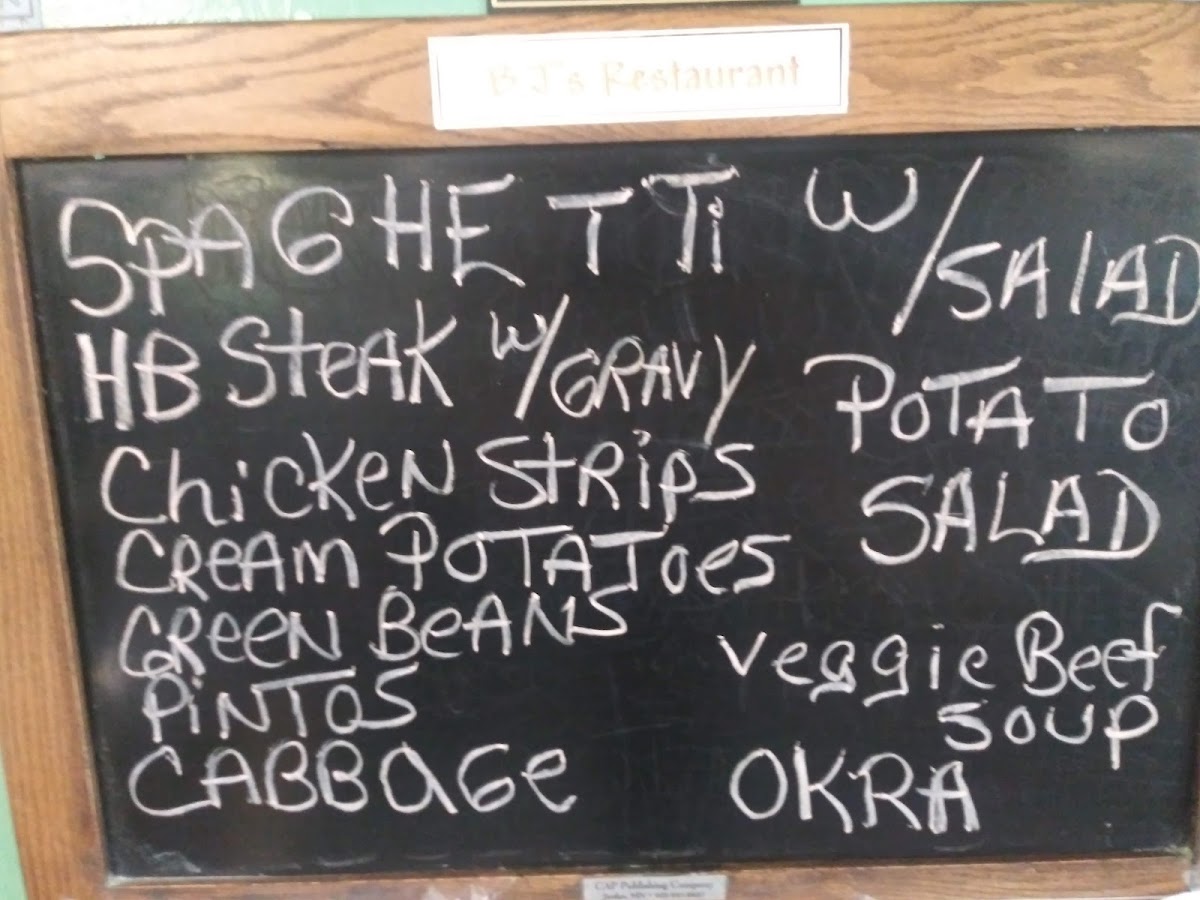 B.J's Restaurant
SPAGHETTi W/SAlAD
HB SteAK w/GRAVY
ChicKeN StRips
CReAM POTATOes
GReeN BeANS
PiNTOS
CABBAGe
POTATO
SALAD
Veggie Beef
soup
OKRA
CAP Publishing Company